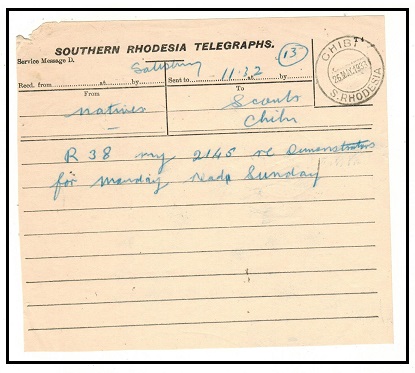 SOUTHERN RHODESIA TELEGRAPHS.
13
Service Message D.
Salisbury
Recd. from at by Sent to 11.32 at by
From To
Natives Scouts
Chibi
R 38 my 2145 re Demonstrators
for Monday read Sunday
CHIBI
S. RHODESIA